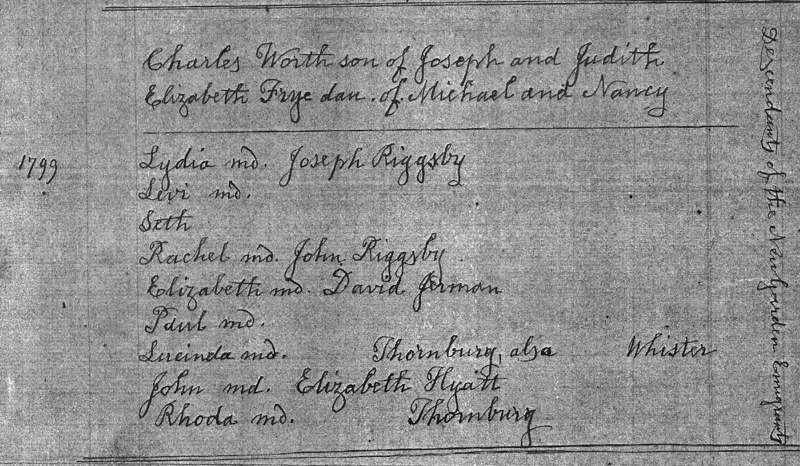 Charles Worth son of Joseph and Judith
Elizabeth Frye dau. of Michael and Nancy
1799 Lydia md. Joseph Riggsby
Levi md.
Seth
Rachel md. John Riggsby
Elizabeth md. David Jerman
Paul md.
Lucinda md. Thornburg, also Whister
John md. Elizabeth Hyatt
Rhoda md. Thornburg
Descendants of the New Garden Emigrants